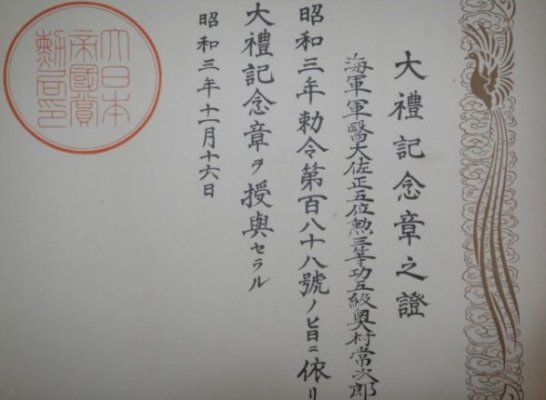 大禮記念章之證
海軍軍醫大佐正五位勲三等功五級奥村常次郎
昭和三年勅令第百八十八號ノ旨ニ依リ
大禮記念章ヲ授與セラル
昭和三年十一月十六日
大日本
帝國賞
勲局印